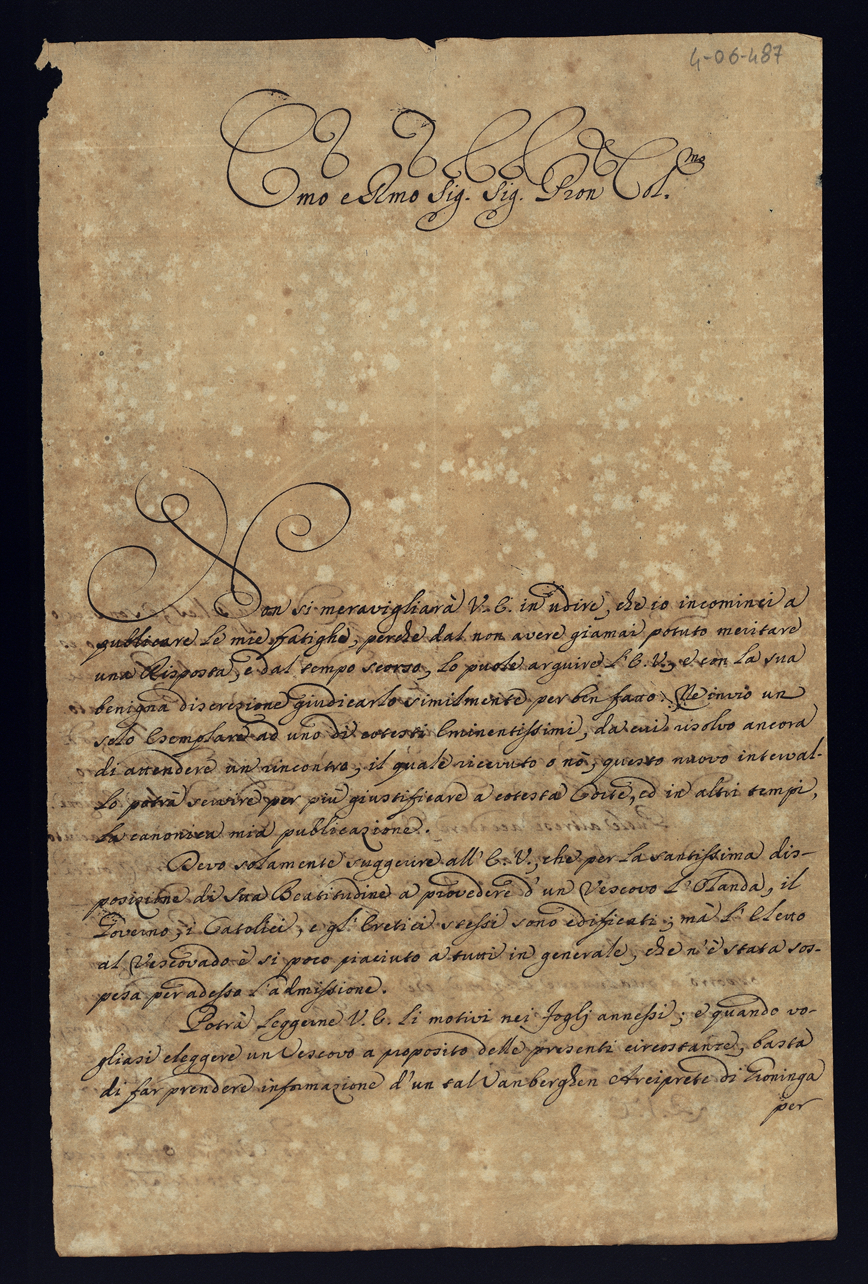 4-06-487
Emo e Rmo Sig. Sig. Pron Col.mo
Non si meravigliarà V. E. in udire, che io incominci a
publicare le mie fatighe, perche dal non avere giamai potuto meritare
una Risposta, e dal tempo scorso, lo puole arguire l'E. V., e con la sua
benigna discrezione giudicarlo similmente per ben fatto. Ne invio un
solo Esemplare ad uno di cotesti Eminentissimi, da cui risolvo ancora
di attendere un rincontro, il quale ricevuto o nò, questo nuovo interval-
lo potrà servire per più giustificare a cotesta Corte, ed in altri tempi,
la canonica mia publicazione.
Devo solamente suggerire all'E. V., che per la santissima dis-
posizione di Sua Beatitudine a provedere d'un Vescovo l'Olanda, il
Governo, i Catolici, e gl'Eretici stessi sono edificati; mà l'Eletto
al Vescovado è si poco piaciuto a tutti in generale, che n'è stata sos-
pesa per adesso l'admissione.
Potrà leggerne V. E. li motivi nei foglj annessi; e quando vo-
gliasi eleggere un Vescovo a proposito delle presenti circostanze, basta
di far prendere informazione d'un tal Vanberghen Arciprete di Groninga
per